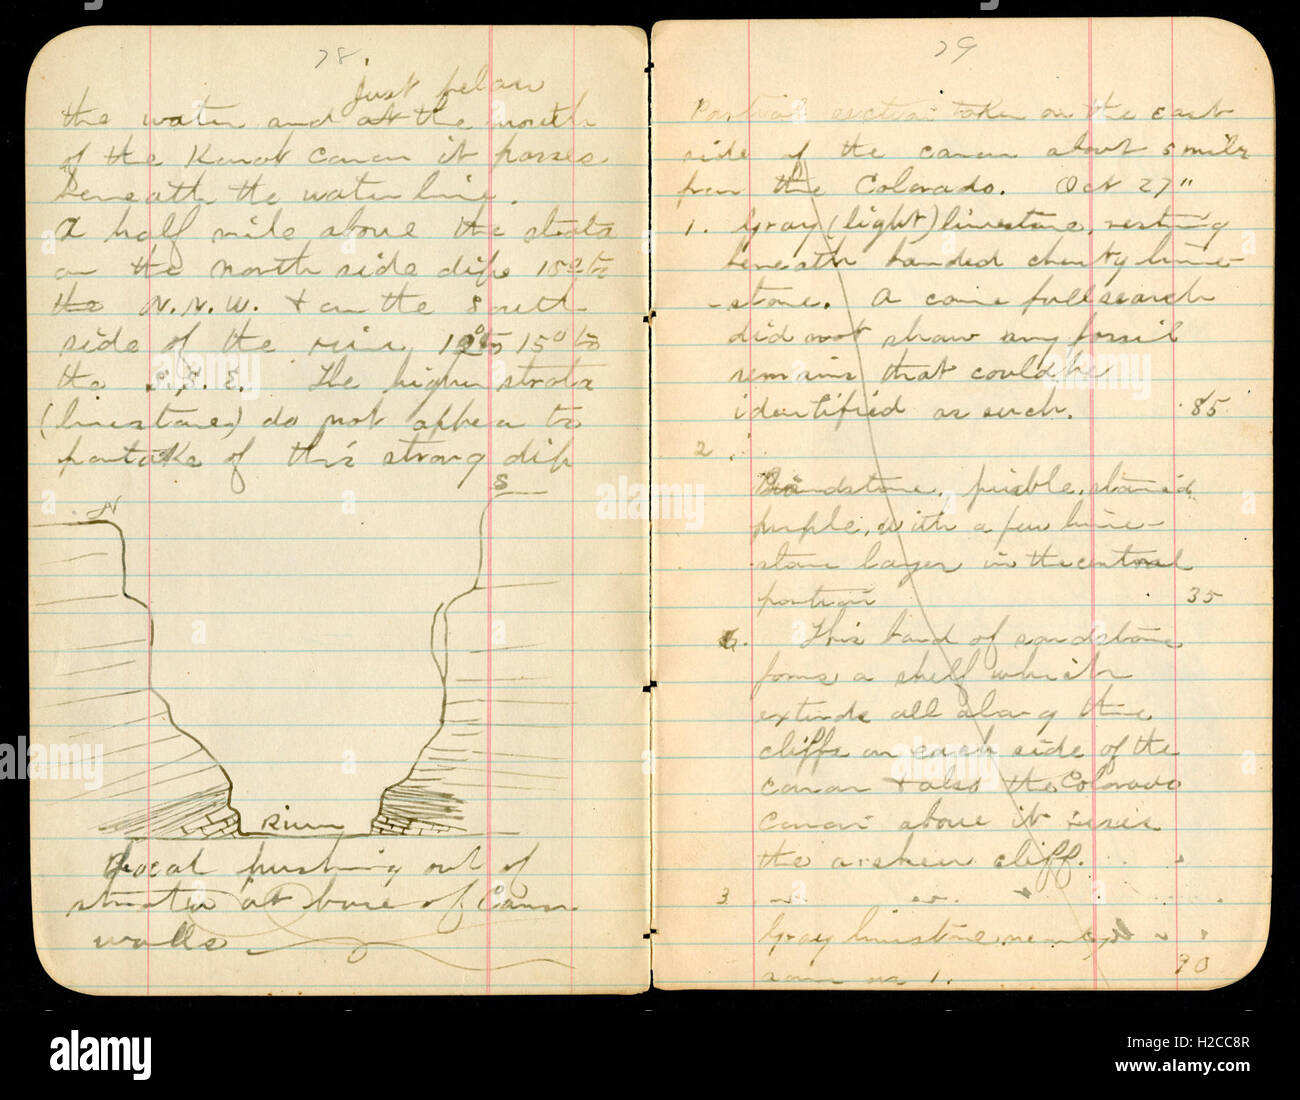 78
just below
the water and at the mouth
of the Kanab Canon it passes
beneath the water line.
A half mile above the strata
on the north side dips 15° to
the N.N.W. & on the South
side of the river 10° to 15° to
the S.S.E. The higher strata
(limestones) do not appear to
partake of this strong dip
N
S
River
Local pushing out of
strata at base of Canon
walls
79
Partial section taken on the east
side of the canon about 5 miles
from the Colorado. Oct 27"
1. Gray (light) limestone, resting
beneath banded cherty lime-
-stone. A careful search
did not show any fossil
remains that could be
identified as such. 85
2.
Sandstone, friable, stained
purple, with a few lime-
stone layers in the central
portion 35
This band of sandstone
forms a shelf which
extends all along the
cliffs on each side of the
canon & also the Colorado
Canon above it rises
the cliff.
3
Gray limestone nearly
same as 1. 90
alamy
Image ID: H2CC8R
www.alamy.com